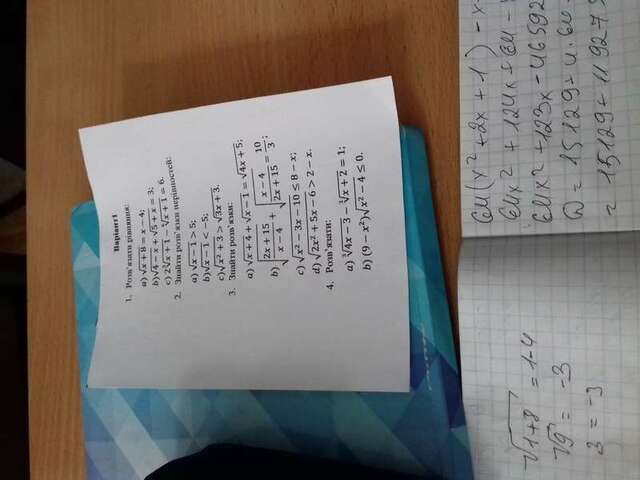 Варіант1
1. Розв'язати рівняння:
a) √(x + 8) = x − 4;
b) √(4 − x) + √(5 + x) = 3;
c) 2∛(x + 1) − ⁶√(x + 1) = 6.
2. Знайти розв'язки нерівностей:
a) √(x − 1) > 5;
b) √(x − 1) < −5;
c) √(x² + 3) > √(3x + 3).
3. Знайти розв'язки:
a) √(x + 4) + √(x − 1) = √(4x + 5);
b) √((2x + 15)/(x − 4)) + √((x − 4)/(2x + 15)) = 10/3;
c) √(x² − 3x − 10) ≤ 8 − x;
d) √(2x² + 5x − 6) > 2 − x.
4. Розв'язати:
a) ∛(4x − 3) − ∛(x + 2) = 1;
b) (9 − x²)√(x² − 4) ≤ 0.
√(1+8) = 1-4
√9 = -3
3 = -3
64(x² + 2x + 1) - x
64x² + 124x + 64 -
64x² + 123x - 46592
D = 15129 + 4·64
= 15129 + 119275